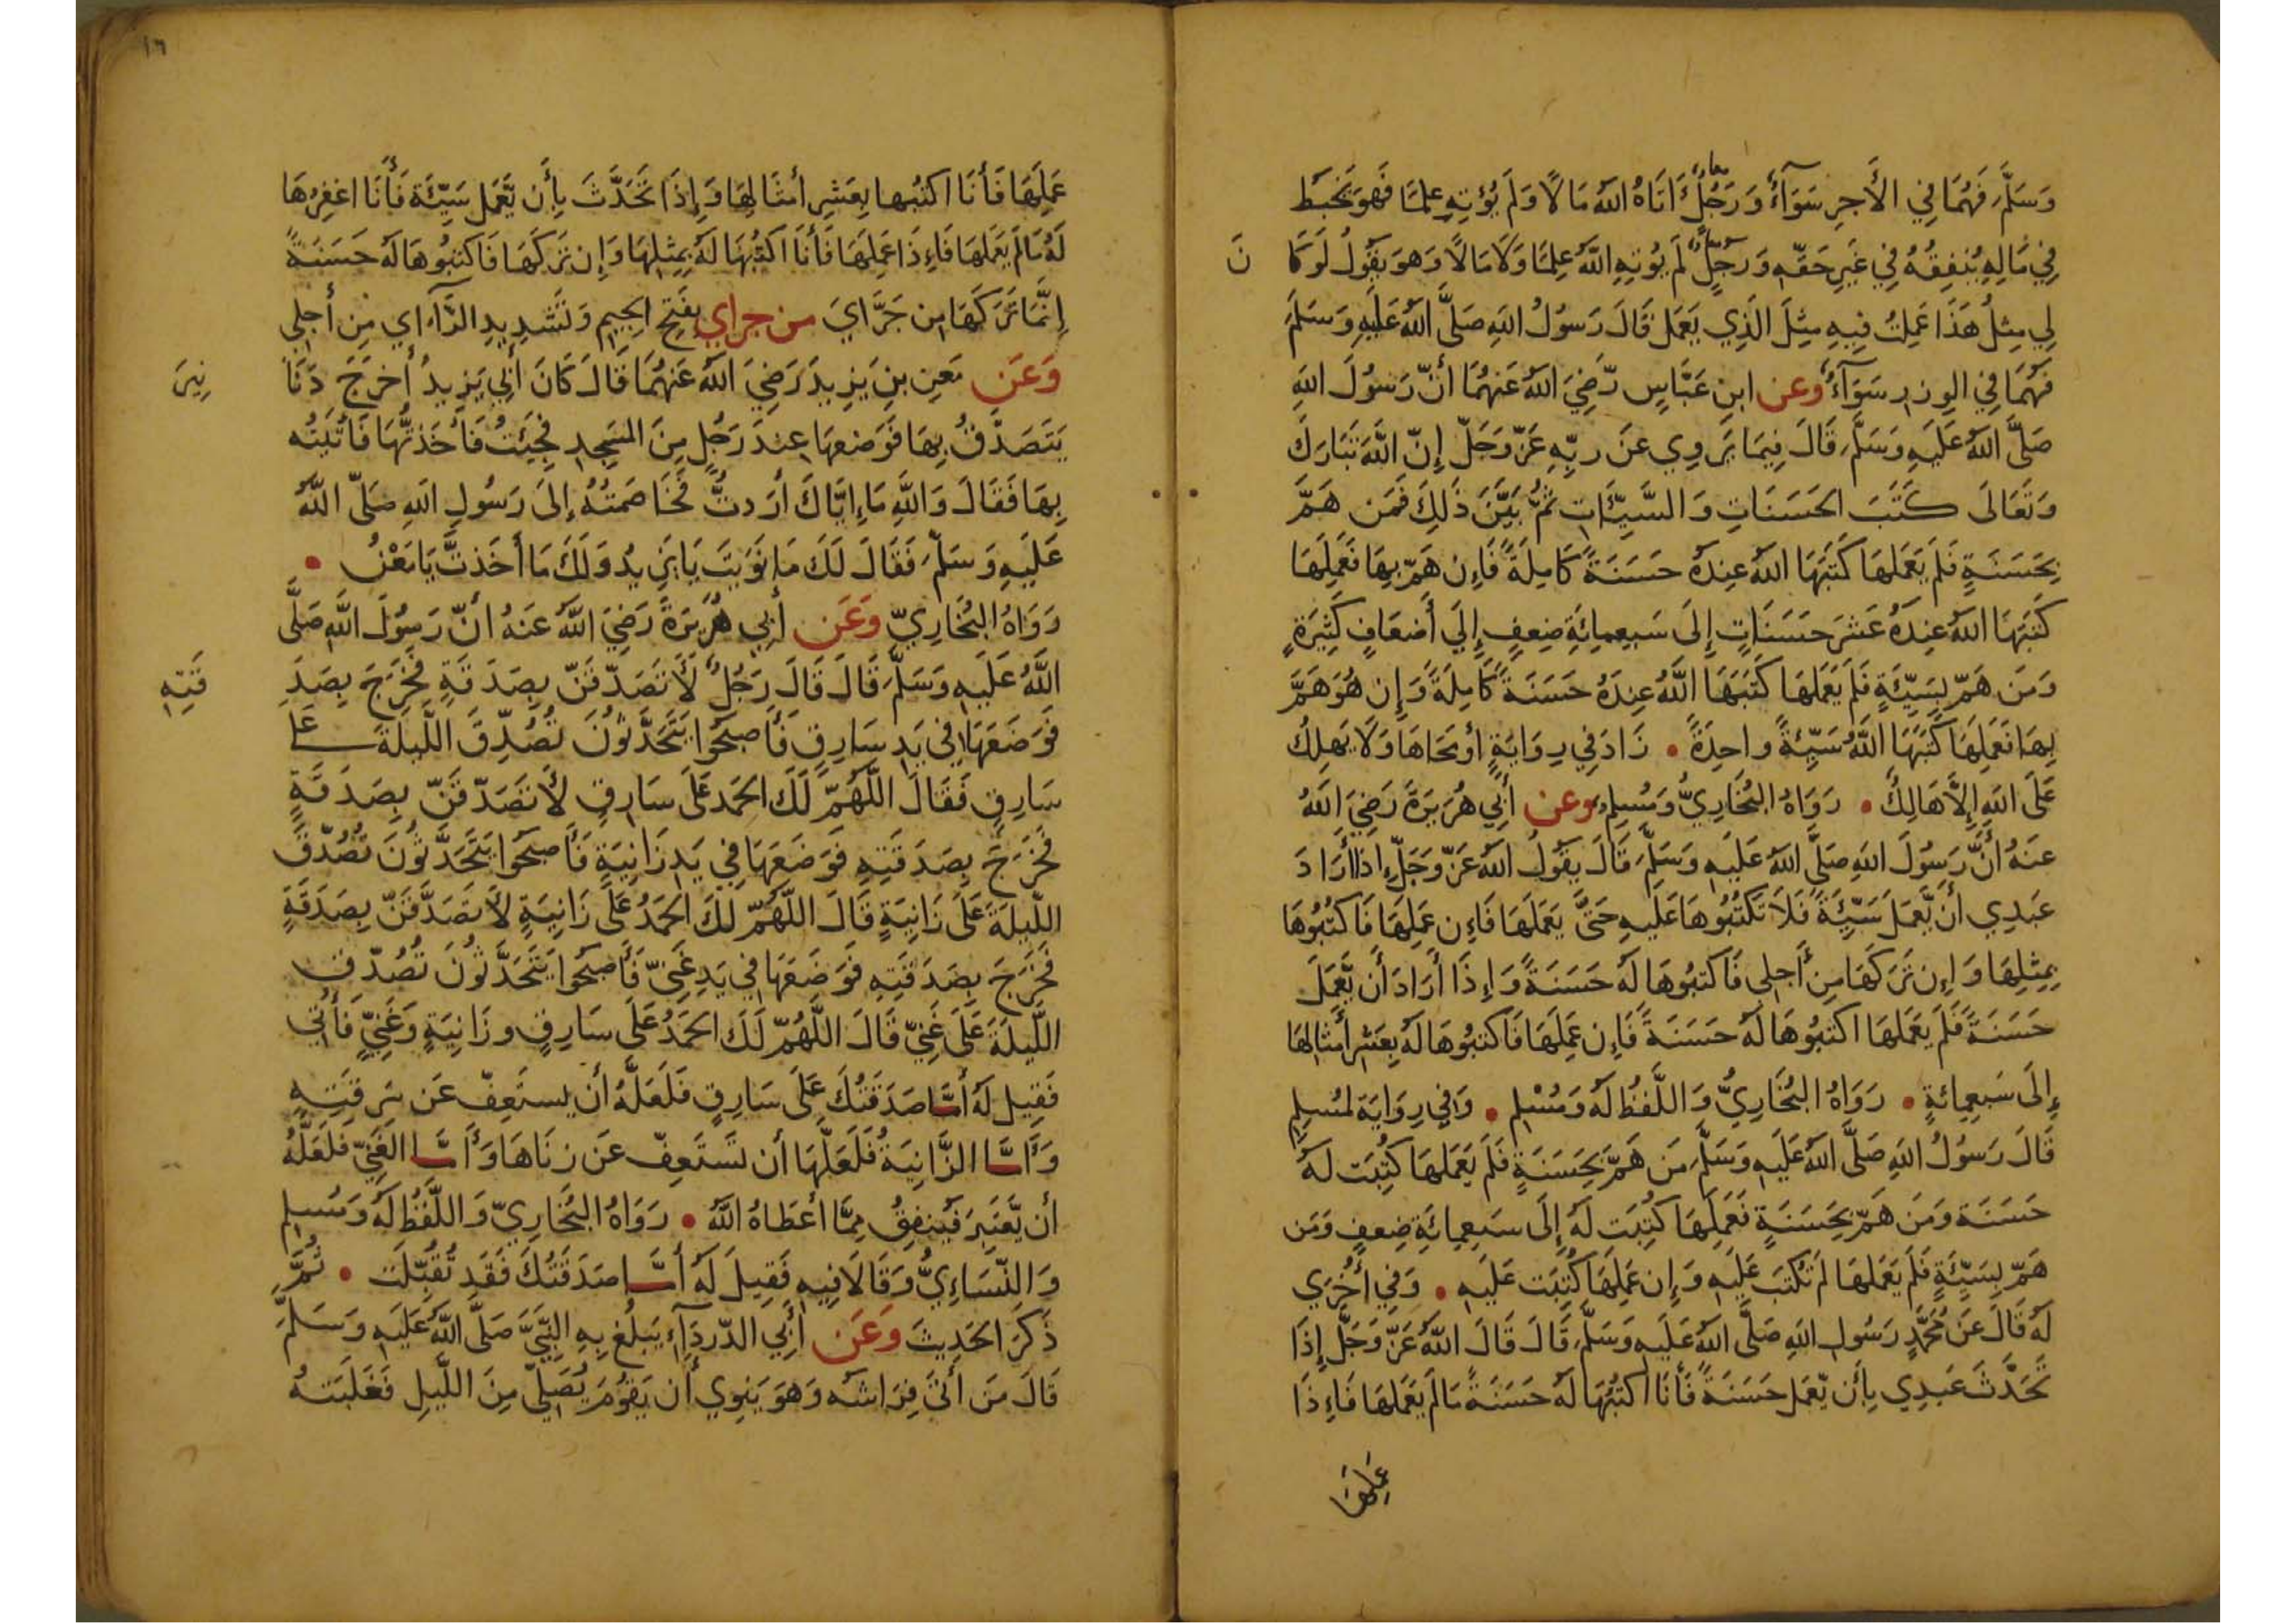 وَسَلَّمَ فَهُمَا فِي الأَجرِ سَوَآءٌ وَرَجُلٌ اَتَاهُ اللَّهُ مَالًا وَلَم يُؤتِهِ عِلمًا فَهوَ يَخبَطُ
فِي مَالِهِ يُنفِقُهُ فِي غَيرِ حَقِّهِ وَرَجُلٌ لَم يُوتِهِ اللَّهُ عِلمًا وَلَا مَالًا وَهوَ يَقُولُ لَو كَا نَ
لِي مِثلُ هَذَا عَمِلتُ فِيهِ مِثلَ الَّذِي يَعمَل قَالَ رَسُولُ اللهِ صَلَّى اللهُ عَلَيهِ وَسَلَّمَ
فَهُمَا فِي الوِزرِ سَوَآءٌ وعن ابنِ عَبَّاسٍ رَّضِيَ اللهُ عَنهُمَا أَنَّ رَسُولَ اللهِ
صَلَّى اللهُ عَلَيهِ وَسَلَّمَ قَالَ فِيمَا يَروِي عَن رَبِّهِ عَزَّ وَجَلَّ إِنَّ اللَّهَ تَبَارَكَ
وَتَعَالَى كَتَبَ الحَسَنَاتِ وَالسَّيِّئَاتِ ثُمَّ بَيَّنَ ذَلِكَ فَمَن هَمَّ
بِحَسَنَةٍ فَلَم يَعمَلهَا كَتَبَهَا اللهُ عِندَهُ حَسَنَةً كَامِلَةً فَإِن هَمَّ بِهَا فَعَمِلَهَا
كَتَبَهَا اللهُ عِندَهُ عَشرَ حَسَنَاتٍ إِلَى سَبعِمِائَةِ ضِعفٍ إِلَى أَضعَافٍ كَثِيرَةٍ
وَمَن هَمَّ بِسَيِّئَةٍ فَلَم يَعمَلهَا كَتَبَهَا اللَّهُ عِندَهُ حَسَنَةً كَامِلَةً وَإِن هُوَ هَمَّ
بِهَا فَعَمِلَهَا كَتَبَهَا اللَّهُ سَيِّئَةً واحِدَةً • زَادَ فِي رِوَايَةٍ أَو مَحَاهَا وَلَا يَهلِكُ
عَلَى اللهِ إِلَّا هَالِكٌ • رَوَاهُ البُخَارِيُّ وَمُسلِمٌ وعن أَبِي هُرَيرَةَ رَضِيَ اللهُ
عَنهُ أَنَّ رَسُولَ اللهِ صَلَّى اللهُ عَلَيهِ وَسَلَّمَ قَالَ يَقُولُ اللهُ عَزَّ وَجَلَّ إِذَا أَرَادَ
عَبدِي أَن يَّعمَلَ سَيِّئَةً فَلَا تَكتُبُوهَا عَلَيهِ حَتَّى يَعمَلَهَا فَإِن عَمِلَهَا فَاكتُبُوهَا
بِمِثلِهَا وَإِن تَرَكَهَا مِن أَجلِي فَاكتبُوهَا لَهُ حَسَنَةً وَإِذَا أَرَادَ أَن يَّعمَلَ
حَسَنَةً فَلَم يَعمَلهَا اكتبُوهَا لَهُ حَسَنَةً فَإِن عَمِلَهَا فَاكتبُوهَا لَهُ بِعَشرِ أَمثَالِهَا
إِلَى سَبعِمِائةٍ • رَوَاهُ البُخَارِيُّ وَاللَّفظُ لَهُ وَمُسْلِم • وَفِي رِوَايَة لمُسلِمٍ
قَالَ رَسُولُ اللهِ صَلَّى اللهُ عَلَيهِ وَسَلَّمَ مَن هَمَّ بِحَسَنَةٍ فَلَم يَعمَلهَا كُتِبَت لَهُ
حَسَنَة وَمَن هَمَّ بِحَسَنَةٍ فَعَمِلَهَا كُتِبَت لَهُ إِلَى سَبعِمِائَةِ ضِعفٍ وَمَن
هَمَّ بِسَيِّئَةٍ فَلَم يَعمَلهَا لَم تُكتَب عَلَيهِ وَإِن عَمِلَهَا كُتِبَت عَلَيهِ • وَفِي أُخرَى
لَهُ قَالَ عَن مُحَمَّدٍ رَسُولِ اللهِ صَلَّى اللهُ عَلَيهِ وَسَلَّمَ قَالَ قَالَ اللهُ عَزَّ وَجَلَّ إِذَا
تَحَدَّثَ عَبدِي بِأَن يَّعمَل حَسَنَةً فَأَنَا اكتُبُهَا لَهُ حَسَنَةً مَا لَم يَعمَلهَا فَإِذَا
عَمِلَهَا
١٦
عَمِلَهَا فَأَنَا اكتُبهَا بِعَشرِ أَمثَالِهَا وَإِذَا تَحَدَّثَ بِأَن يَّعمَل سَيِّئَة فَأَنَا اغفِرُهَا
لَهُ مَا لَم يَعمَلهَا فَإِذَا عَمِلَهَا فَأَنَا اكتُبُهَا لَهُ بِمِثلِهَا وَإِن تَرَكَهَا فَاكتبُوهَا لَهُ حَسَنَةً
إِنَّمَا تَرَكَهَا مِن جَرَّايَ من جراي بِفَتحِ الجِيمِ وَتَشدِيدِ الرَّآءِ اي مِن أَجلِي
وَعَن مَعنِ بنِ يَزِيدَ رَضِيَ اللهُ عَنهُمَا قَالَ كَانَ أَبِي يَزِيدُ أَخرَجَ دَنَا نِيرَ
يَتَصَدَّقُ بِهَا فَوَضعهَا عِندَ رَجُلٍ مِنَ المَسجِدِ فَجِئتُ فَأَخَذتُّهَا فَأَتَيتُه
بِهَا فَقَالَ وَاللَّهِ مَا إِيَّاكَ أَرَدتُّ فَخَاصَمتُهُ إِلَى رَسُولِ اللهِ صَلَّى اللَّهُ
عَلَيهِ وَسَلَّمَ فَقَالَ لَكَ مَا نَوَيتَ يَا يَزِيدُ وَلَكَ مَا أَخَذتَّ يَا مَعْنُ •
رَوَاهُ البُخَارِيّ وَعَن أَبِي هُرَيرَةَ رَضِيَ اللَّهُ عَنهُ أَنَّ رَسُولَ اللَّهِ صَلَّى
اللَّهُ عَلَيهِ وَسَلَّمَ قَالَ قَالَ رَجُلٌ لَأَتَصَدَّقَنَّ بِصَدَقَةٍ فَخَرَجَ بِصَدَ قَتِهِ
فَوَضَعَهَا فِي يَدِ سَارِقٍ فَأَصبَحُوا يَتَحَدَّثُونَ تُصُدِّقَ اللَّيلَةَ عَلَى
سَارِقٍ فَقَالَ اللَّهُمَّ لَكَ الحَمد عَلَى سَارِقٍ لَأَتَصَدَّقَنَّ بِصَدَقَةٍ
فَخَرَجَ بِصَدَقَتِهِ فَوَضَعَهَا فِي يَدِ زَانِيَةٍ فَأَصبَحُوا يَتَحَدَّثُونَ تُصُدِّقَ
اللَّيلَةَ عَلَى زَانِيَةٍ قَالَ اللَّهُمَّ لَكَ الحَمدُ عَلَى زَانِيَةٍ لَأَتَصَدَّقَنَّ بِصَدَقَةٍ
فَخَرَجَ بِصَدَقَتِهِ فَوَضَعَهَا فِي يَدِ غَنِيٍّ فَأَصبَحُوا يَتَحَدَّثُونَ تُصُدِّقَ
اللَّيلَةَ عَلَى غَنِيٍّ قَالَ اللَّهُمَّ لَكَ الحَمدُ عَلَى سَارِقٍ وزَانِيَةٍ وَغَنِيٍّ فَأُتِي
فَقِيلَ لَهُ أَمَّا صَدَقَتُكَ عَلَى سَارِقٍ فَلَعَلَّهُ أَن يستَعِفّ عَن سَرِقَتِهِ
وَأَمَّا الزَّانِيَةُ فَلَعَلَّهَا أَن تَستَعِفّ عَن زِنَاهَا وَأَمَّا الغَنِيّ فَلَعَلَّهُ
أَن يَّعتَبِرَ فَيُنفِقُ مِمَّا أَعطَاهُ اللَّهُ • رَوَاهُ البُخَارِيّ وَاللَّفظُ لَهُ وَمُسلِم
وَالنَّسَاءِيُّ وَقَالَا فِيهِ فَقِيلَ لَهُ أَمَّا صَدَقَتُكَ فَقَد تُقُبِّلَت • ثُمَّ
ذَكَرَ الحَدِيثَ وَعَن أَبِي الدَّردَآءِ يَبلُغ بِهِ النَّبِيَّ صَلَّى اللَّهُ عَلَيهِ وَسَلَّمَ
قَالَ مَن أَتَى فِرَاشَه وَهوَ يَنوِي أَن يَقُومَ يُصَلِّي مِنَ اللَّيلِ فَغَلَبَتهُ